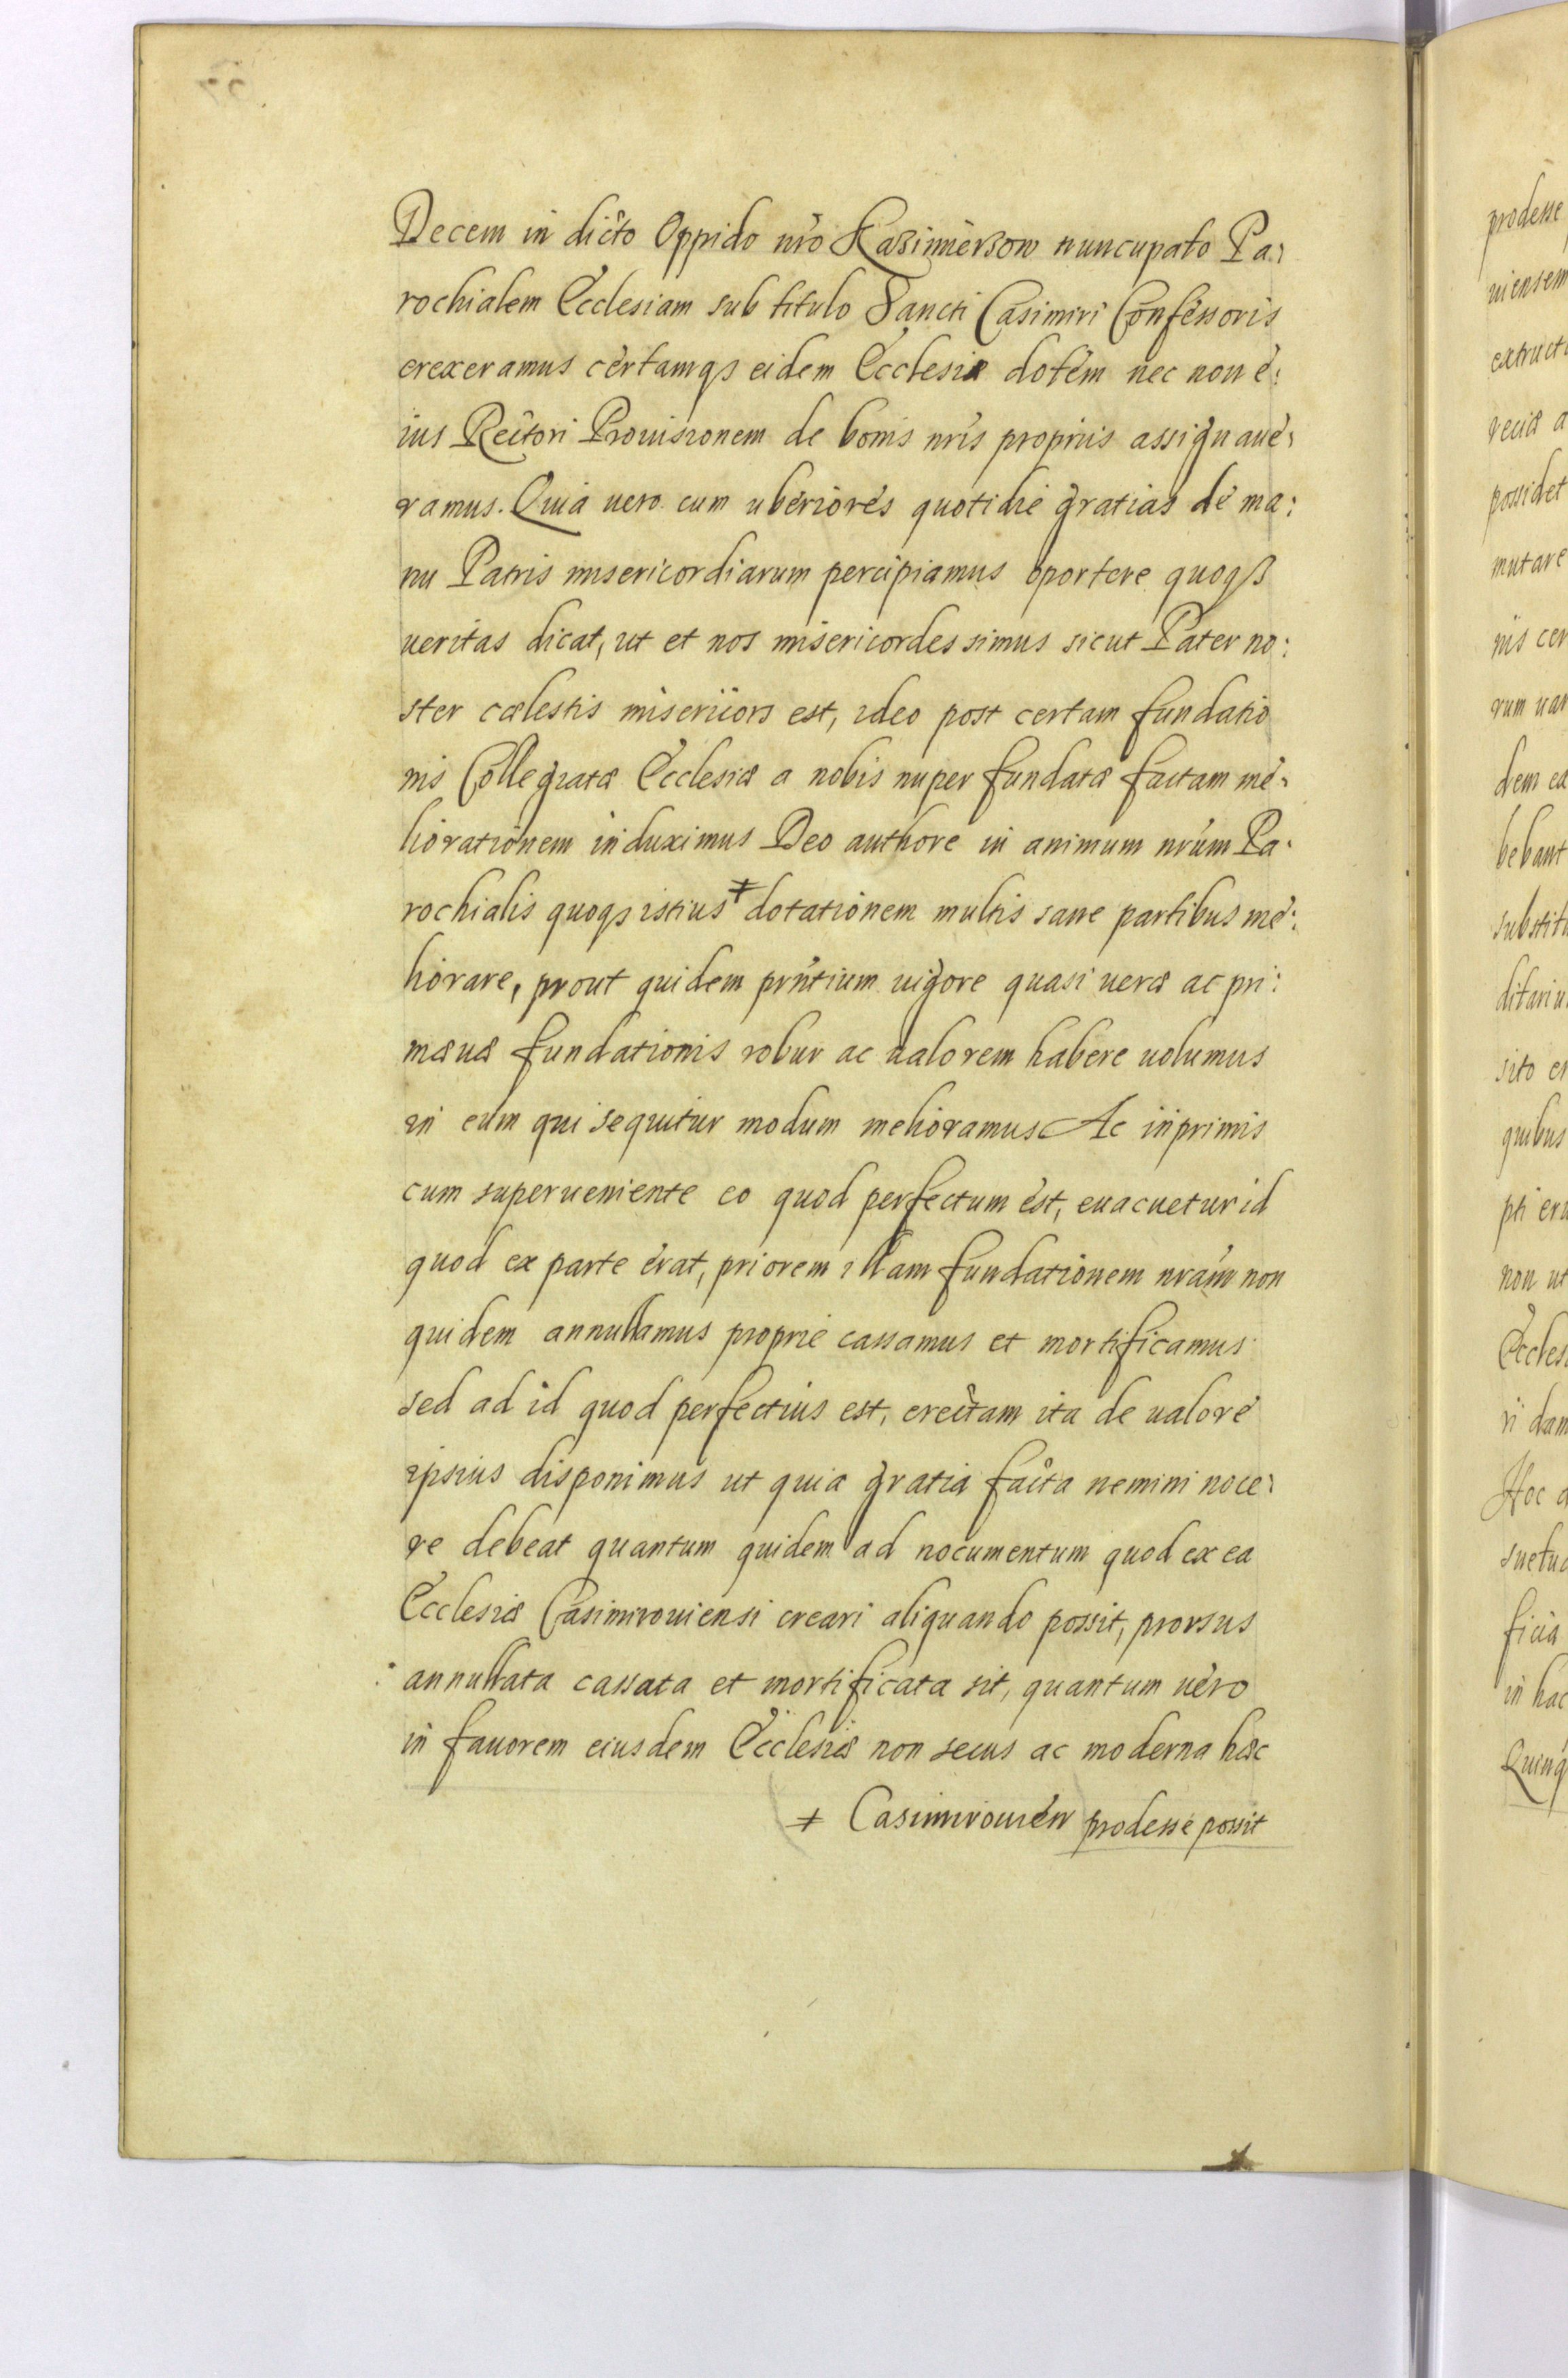 Decem in dicto Oppido nro Kazimierzow nuncupato Pa:
rochialem Ecclesiam sub titulo Sancti Casimiri Confessoris
erexeramus certamqs eidem Ecclesiæ dotem nec non e:
ius Rectori Prouisionem de bonis nris proprijs assignaue:
ramus. Quia uero cum uberiores quotidie gratias de ma:
nu Patris misericordiarum percipiamus oportere quoqs
ueritas dicat, ut et nos misericordes simus sicut Pater no:
ster cælestis misericors est, ideo post certam fundatio
nis Collegiatæ Ecclesiæ a nobis nuper fundatæ factam me:
liorationem induximus Deo authore in animum nrum Pa:
rochialis quoqs istius ǂ dotationem multis sane partibus me:
liorare, prout quidem prntium uigore quasi ueræ ac pri:
mæuæ fundationis robur ac ualorem habere uolumus
in eum qui sequitur modum melioramus Ac inprimis
cum superueniente eo quod perfectum est, euacuetur id
quod ex parte erat, priorem illam fundationem nram non
quidem annullamus proprie cassamus et mortificamus
sed ad id quod perfectius est, erectam ita de ualore
ipsius disponimus ut quia gratia facta nemini noce:
re debeat quantum quidem ad nocumentum quod ex ea
Ecclesiæ Casimirouiensi creari aliquando possit, prorsus
annullata cassata et mortificata sit, quantum uero
in fauorem eiusdem Ecclesiæ non secus ac moderna hæc
ǂ Casimirouien prodesse possit
prodesse
niensem
extruct
possidet
mutare
nis cer
rum uar
dem ea
bebant
substitu
ditariu
sito er
quibus
pti eru
non ut
Eccles
ri dam
Hoc a
suetud
ficia
in hac
Quinq